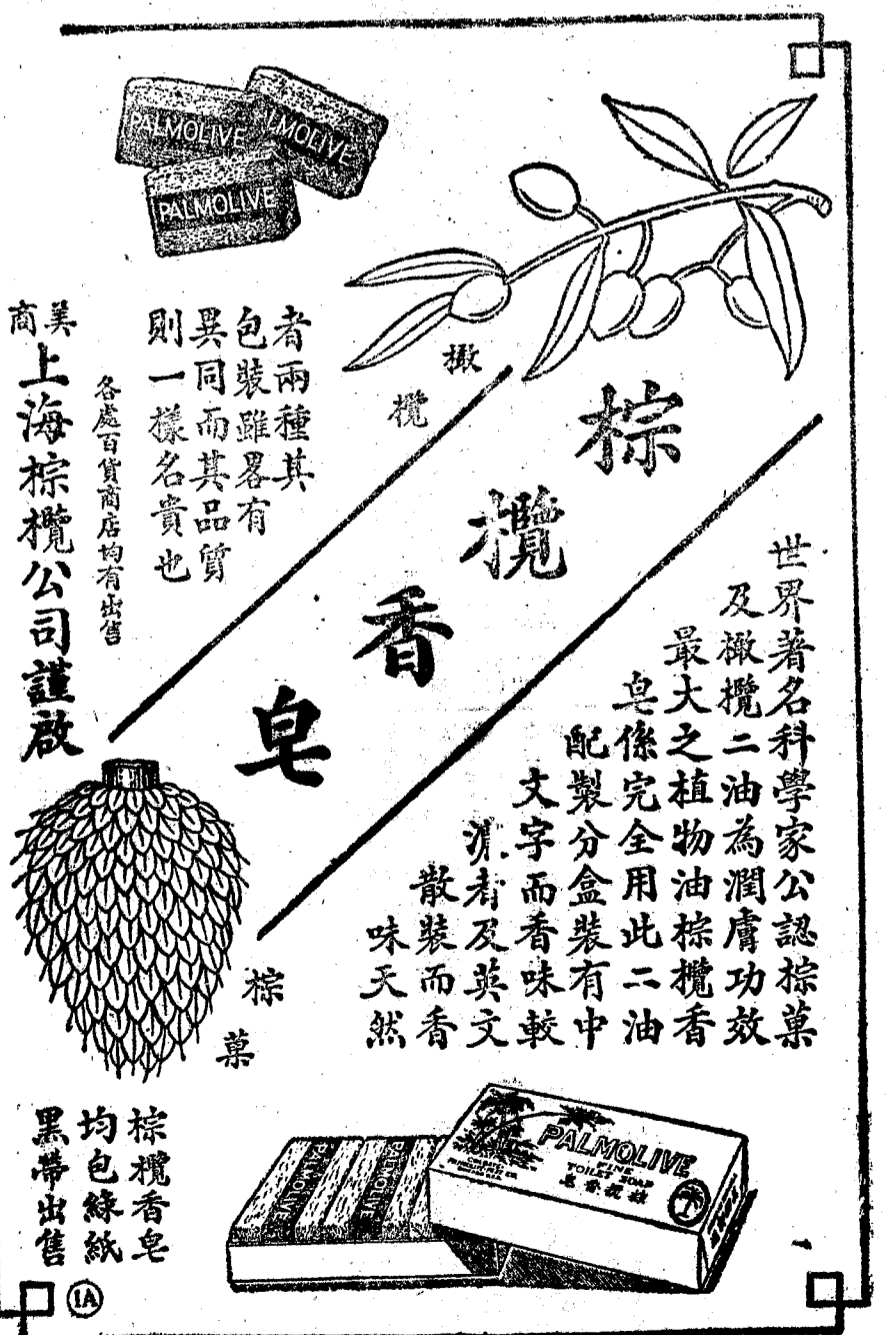 PALMOLIVE
PALMOLIVE
PALMOLIVE
橄
欖
棕欖香皂
世界著名科學家公認棕菓
及橄欖二油為潤膚功效
最大之植物油棕欖香
皂係完全用此二油
配製分盒裝有中
文字而香味較
濃者及英文
散裝而香
味天然
者兩種其
包裝雖畧有
異同而其品質
則一樣名貴也
各處百貨商店均有出售
美商
上海棕欖公司謹啟
棕
菓
PALMOLIVE
PALMOLIVE
PALMOLIVE
FINE
TOILET SOAP
皂香欖棕
棕欖香皂
均包綠紙
黑帶出售
1A